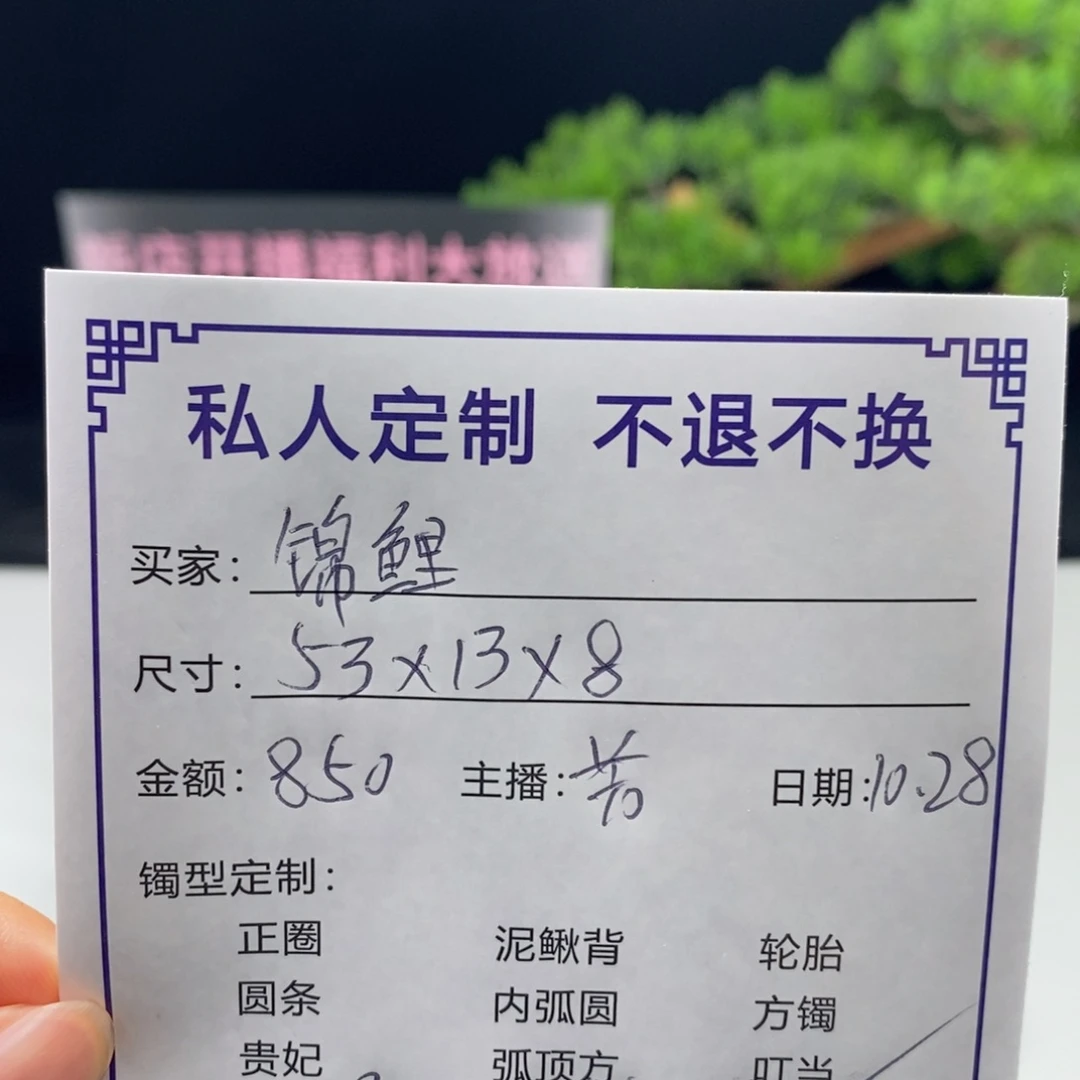 店开播福利大放送
私人定制 不退不换
买家: 锦鲤
尺寸: 53×13×8
金额: 850 主播: 芳 日期: 10.28
镯型定制:
正圈 泥鳅背 轮胎
圆条 内弧圆 方镯
贵妃 弧顶方 叮当